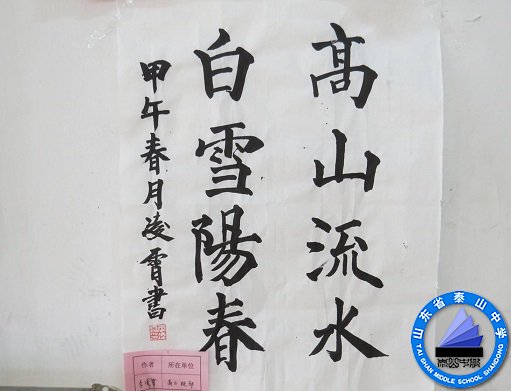 髙山流水
白雪陽春
甲午春月凌霄書
作者
所在单位
山东省泰山中学
TAI SHAN MIDDLE SCHOOL SHANDONG